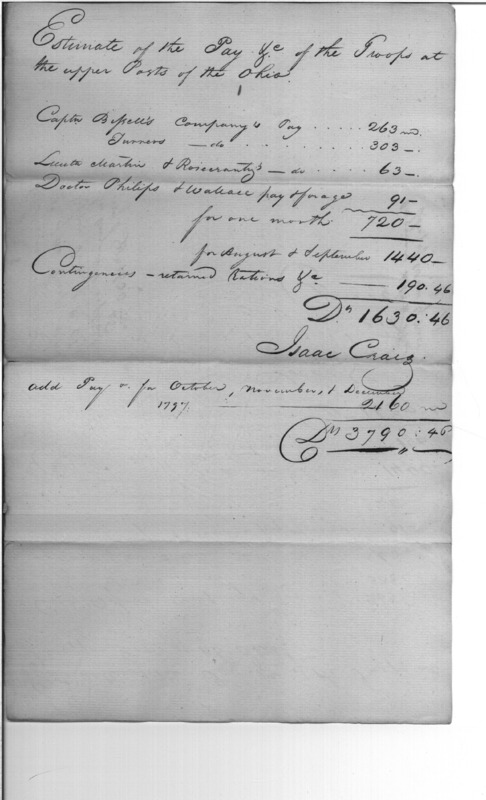 Estimate of the Pay &c of the Troops at
the upper Posts of the Ohio.
Captn Bissell's Company's Pay ..... 263 
Turners — do ..... 303 —
Lieuts Martin & Rosecrantz's — do .. 63 —
Doctor Philips & Wallace pay & forage 91 —
for one month 720 —
for August & September 1440 —
Contingencies — returned Rations &c — 190.46
Drs 1630:46
Isaac Craig.
add Pay &c for October, November, & December
1797 — 2160
Drs 3790:46